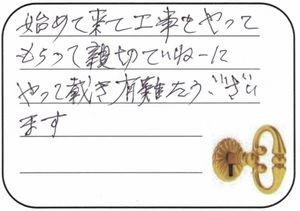 始めて来て工事をやって
もらって親切ていねーに
やって戴き有難たうござい
ます